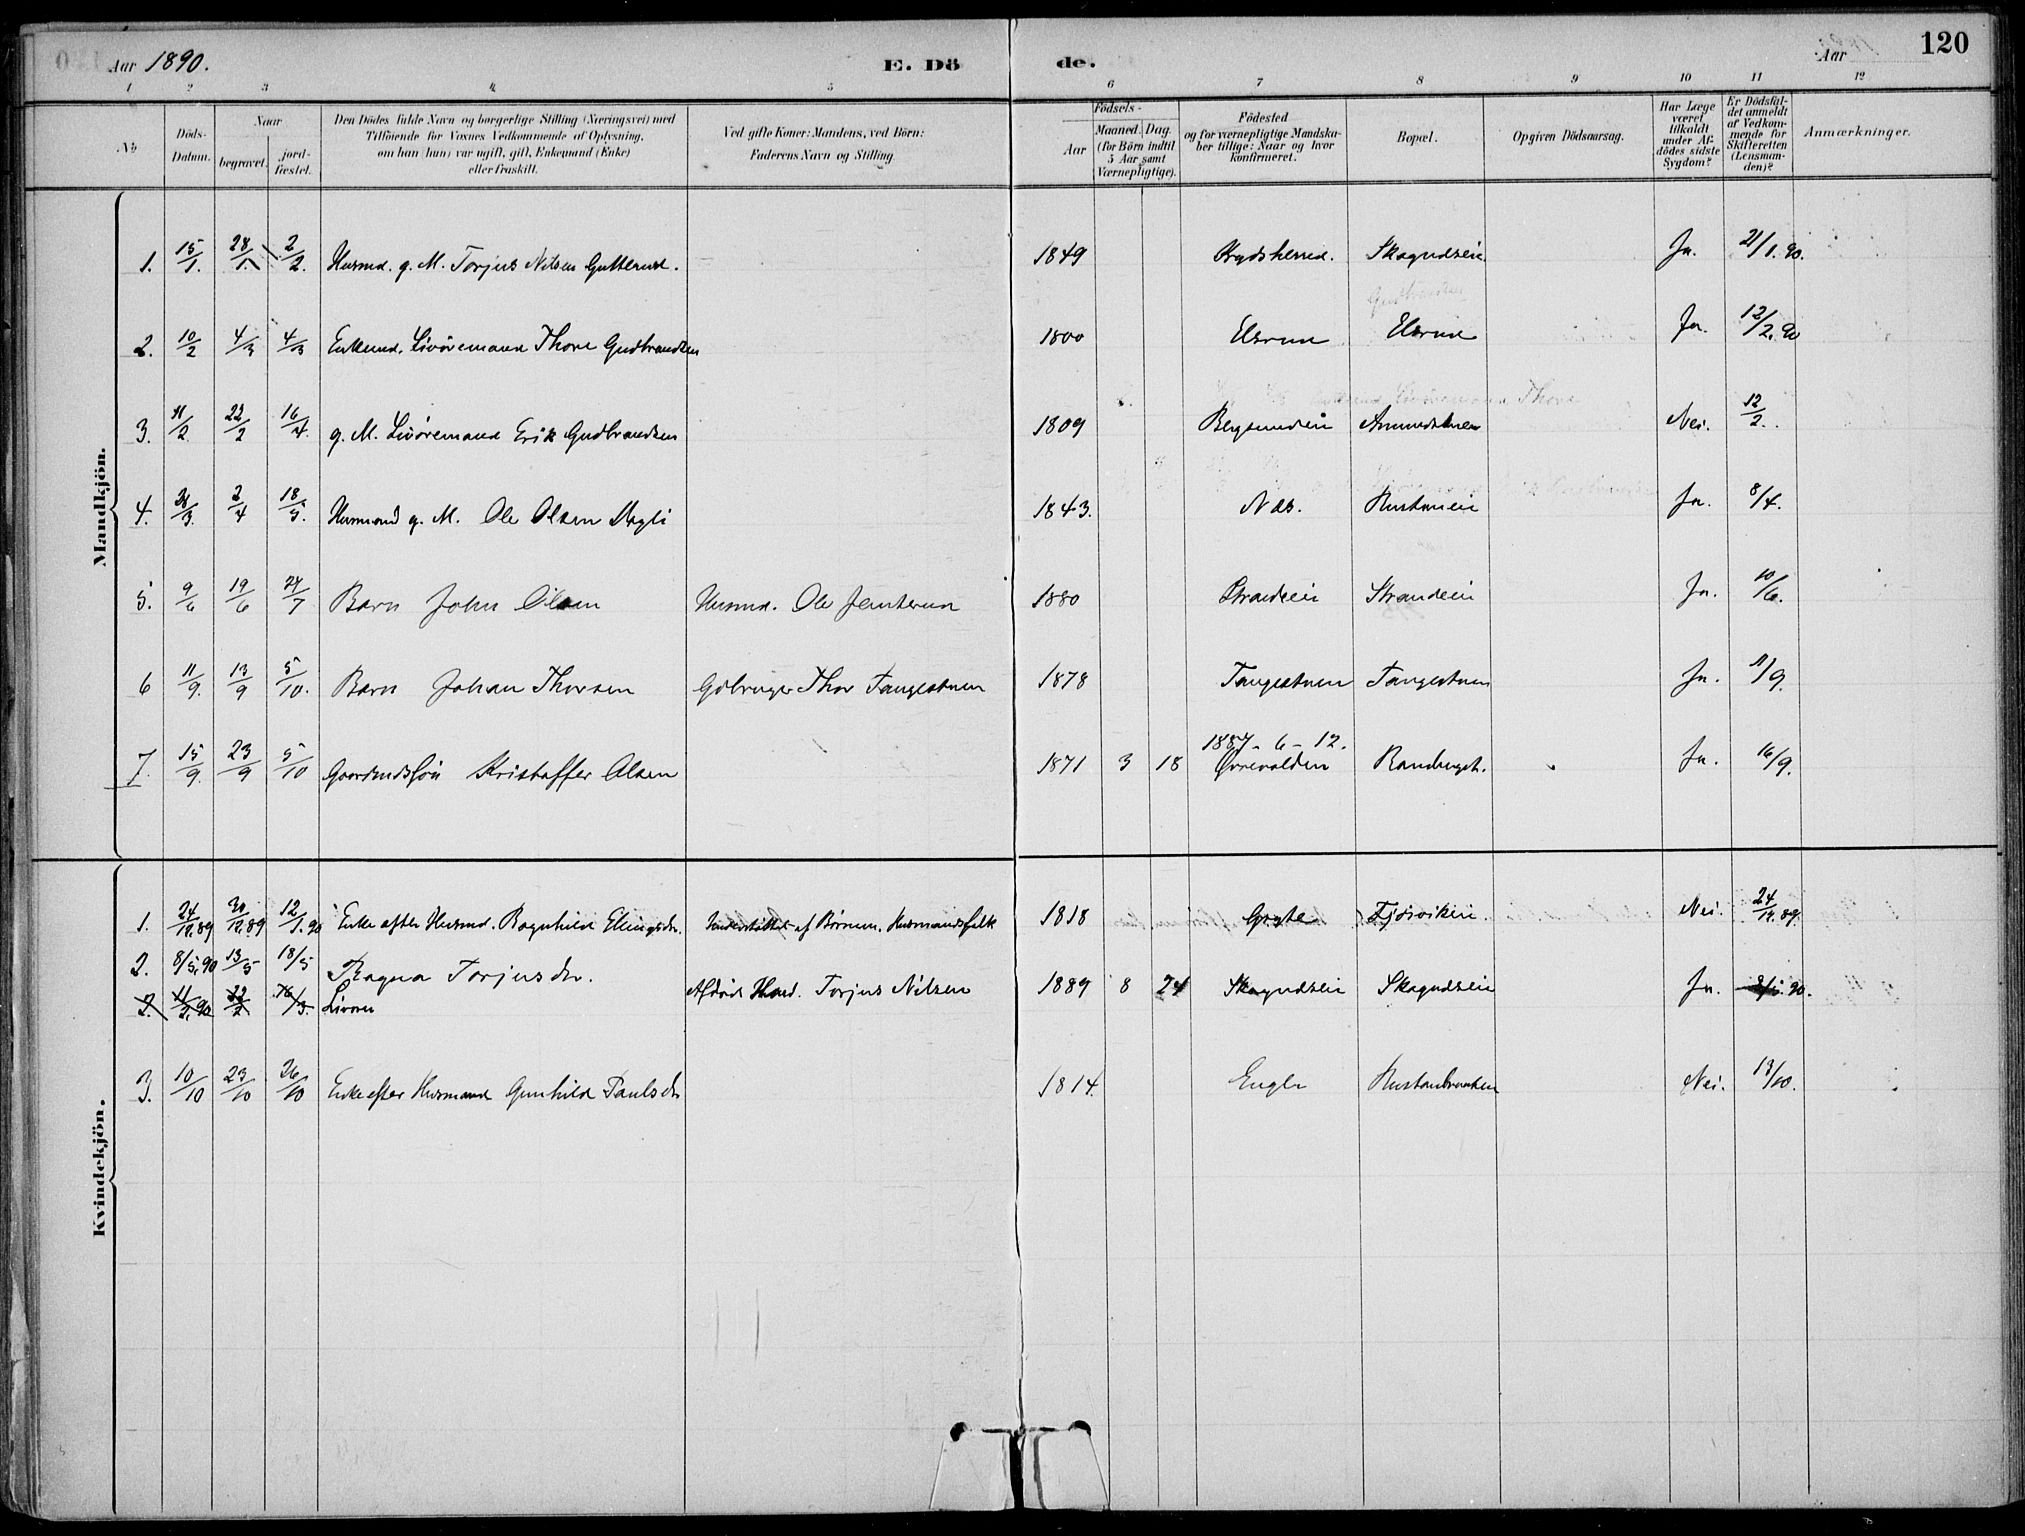 Aar 1890.
E. Dö
de.
Aar
120
1 2 3 4 5 6 7 8 9 10 11 12
No
Döds-Datum.
Naar
begravet.
jord-fæstet.
Den Dödes fulde Navn og borgerlige Stilling (Næringsvei) med
Tilföiende for Voxnes Vedkommende af Oplysning,
om han (hun) var ugift, gift, Enkemand (Enke)
eller fraskilt.
Ved gifte Koner: Mandens, ved Börn:
Faderens Navn og Stilling
Födsels-
Aar
Maaned. Dag.
(for Börn indtil
5 Aar samt
Værnepligtige).
Födested
og for værnepligtige Mandska-
ber tillige: Naar og hvor
konfirmeret.
Bopæl.
Opgiven Dödsaarsag.
Har Læge
været
tilkaldt
under Af-
dödes sidste
Sygdom?
Er Dödsfal-
det anmeldt
af Vedkom-
mende for
Skifteretten
(Lensman-
den)?
Anmærkninger.
Mandkjön.
1. 15/1. 28/1. 2/2. Husmd. g. M. Torjus Nilsen Gulterud. 1849 Krydsherred. Skagndseie Ja. 21/1. 90.
2. 10/2 4/3 4/3 Enkemd. Livöremand Thore Gudbrandsen 1800 Elsrud Elsrud Ja. 12/2. 90
3. 11/2 22/2 16/4. g. M. Livöremand Erik Gudbrandsen 1809 Bergsundeie Nei. 12/2.
4. 28/3 2/4 18/5. Husmand g. M. Ole Olsen 1843. Næs. Rustaneie Ja. 8/4.
5. 9/6 19/6 27/7 Barn John Olsen Husmd. Ole Jenserud 1880 Strandeie Strandeie Ja. 10/6.
6 11/9. 13/9 5/10. Barn Johan Thorsen Gdbruger Thor Tangestuen 1878 Tangestuen Tangestuen Ja. 11/9.
1887 - 6 - 12.
7. 15/9. 23/9 5/10 Gaardmdssön Kristoffer Olsen 1871 3 18 Örrevolden Ja. 16/9.
Kvindekjön.
1. 24/12.89 30/12.89 12/1.90 Enke efter Husmd. Ragnhild Elingsdr. Understöttet af Börnene. Husmandsfolk 1818 Gryte Fjösvikeie. Nei. 24/12.89.
2. 8/5.90 13/5 18/5 Ragna Torjusdr. Afdöd Husmd. Torjus Nilsen 1889 8 24 Skagndseie Skagndseie Ja. 90.
2. 11/2.90 22/2 16/3. Livöre
3. 10/10 23/10 26/10 Enke efter Husmand Gunhild Paulsdr 1814. Engle Rustanbraaten Nei. 13/10.